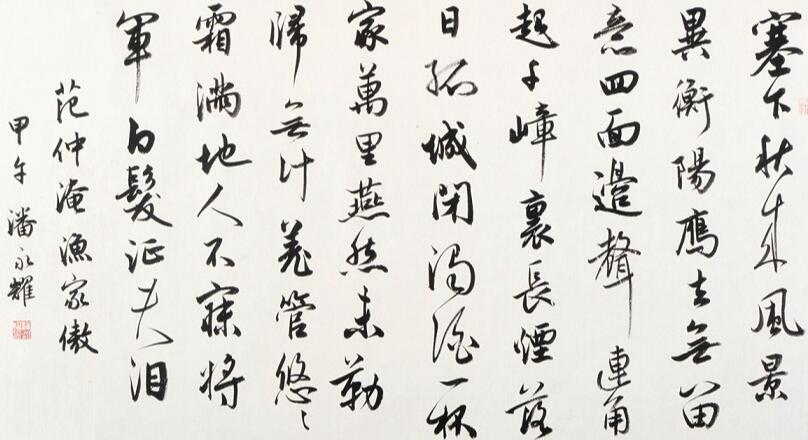 塞下秋來風景
異衡陽鴈去無留
意四面邊聲連角
起千嶂裏長煙落
日孤城閉濁酒一杯
家萬里燕然未勒
歸無計羌管悠々
霜滿地人不寐將
軍白髮征夫泪
范仲淹漁家傲
甲午潘永耀